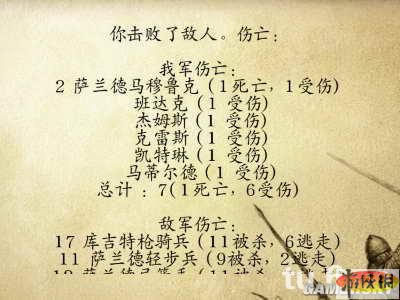 你击败了敌人。伤亡：
我军伤亡：
2 萨兰德马穆鲁克（1死亡，1受伤）
班达克（1 受伤）
杰姆斯（1 受伤）
克雷斯（1 受伤）
凯特琳（1 受伤）
马蒂尔德（1 受伤）
总计 ：7(1死亡，6受伤）
敌军伤亡：
17 库吉特枪骑兵（11被杀，6逃走）
11 萨兰德轻步兵（9被杀，2逃走）
游侠網